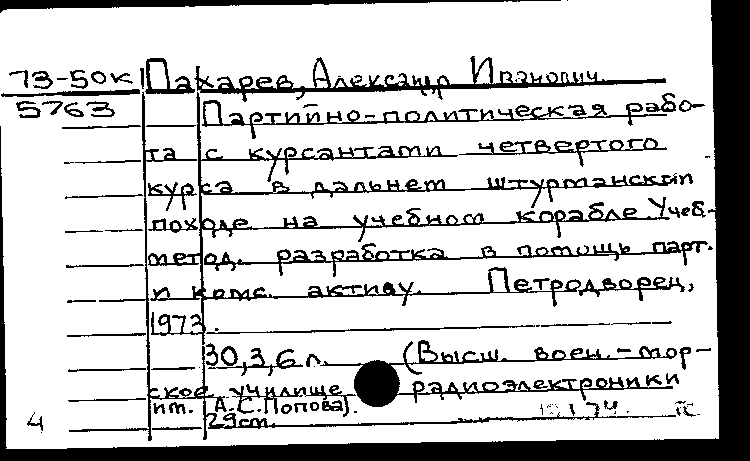 73-50к Пахарев, Александр Иванович.
5763 Партийно-политическая рабо-
та с курсантами четвертого
курса в дальнем штурманском
походе на учебном корабле. Учеб.-
метод. разработка в помощь парт.
и комс. активу. Петродворец,
1973.
30,3,6 л. (Высш. воен.-мор-
ское училище радиоэлектроники
им. А.С.Попова).
4 29см. 74.